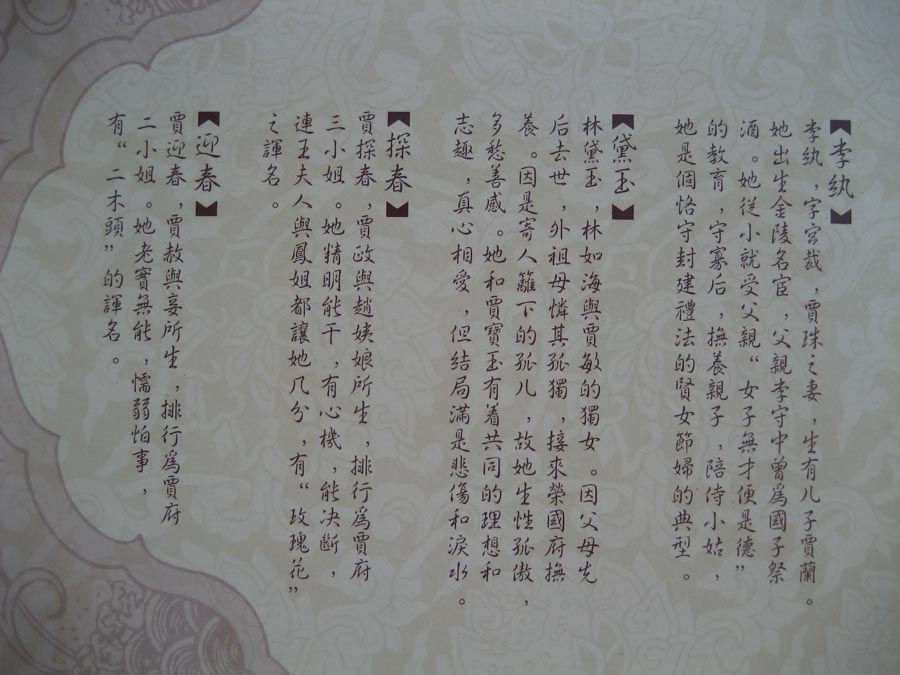 李紈
李紈，字宮裁，賈珠之妻，生有儿子賈蘭。
她出生金陵名宦，父親李守中曾爲國子祭
酒。她從小就受父親“女子無才便是德”
的教育，守寡后，撫養親子，陪侍小姑，
她是個恪守封建禮法的賢女節婦的典型。
黛玉
林黛玉，林如海與賈敏的獨女。因父母先
后去世，外祖母憐其孤獨，接來榮國府撫
養。因是寄人籬下的孤儿，故她生性孤傲，
多愁善感。她和賈寶玉有着共同的理想和
志趣，真心相愛，但結局滿是悲傷和淚水。
探春
賈探春，賈政與趙姨娘所生，排行爲賈府
三小姐。她精明能干，有心機，能决斷，
連王夫人與鳳姐都讓她几分，有“玫瑰花”
之諢名。
迎春
賈迎春，賈赦與妾所生，排行爲賈府
二小姐。她老實無能，懦弱怕事，
有“二木頭”的諢名。